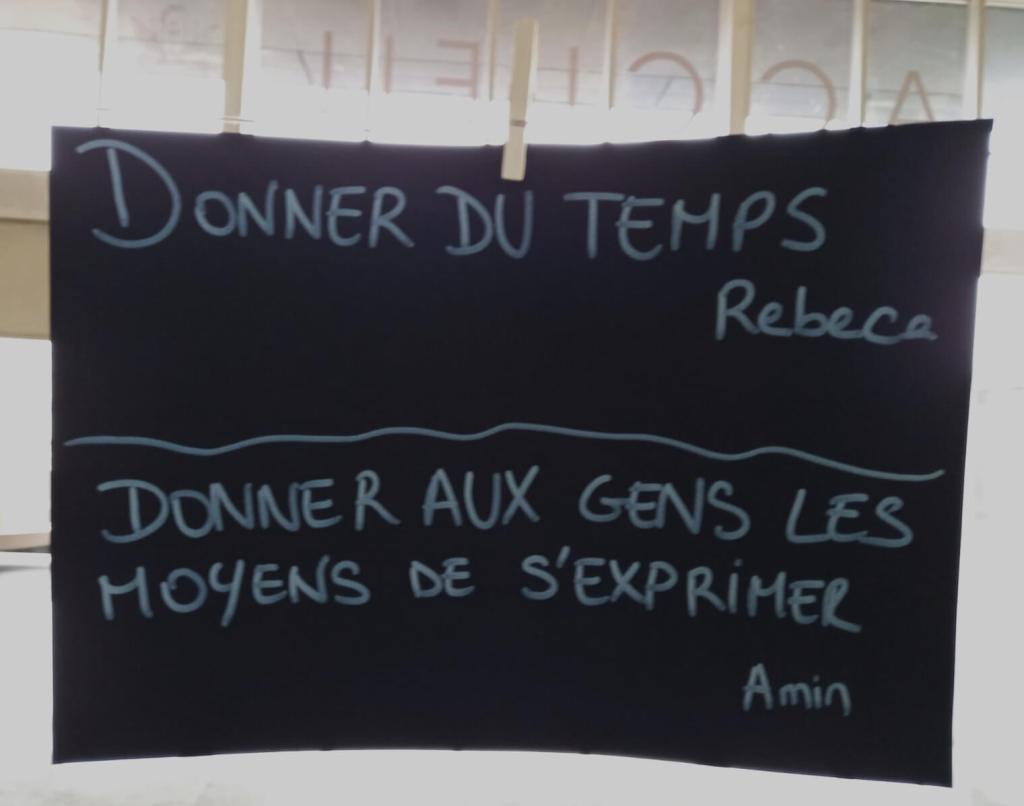 ACCUEIL
DONNER DU TEMPS
Rebeca
DONNER AUX GENS LES
MOYENS DE S'EXPRIMER
Amin